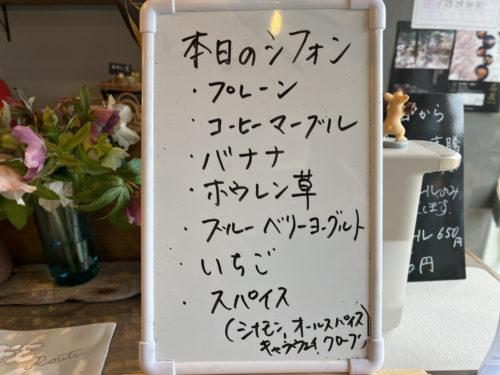 本日のシフォン
・プレーン
・コーヒーマーブル
・バナナ
・ホウレン草
・ブルーベリーヨーグルト
・いちご
・スパイス
(シナモン、オールスパイス)
クローブ
から
のみ
します。
650円
円
Route